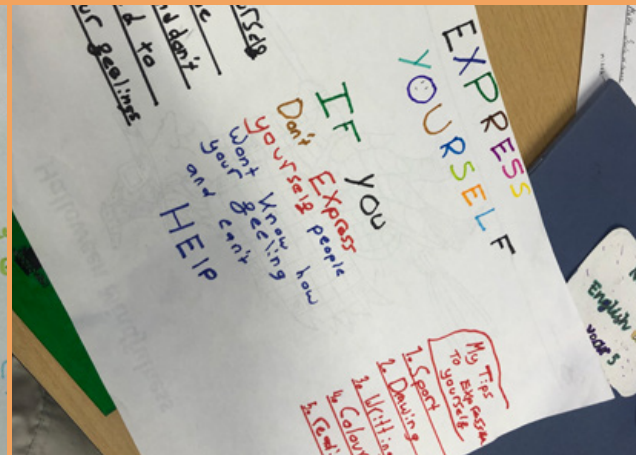 EXPRESS
YOURSELF
IF YOU
Don't Express
yourself people
Wont know how
your feeling
and can't
HELP
My Tips
To Expresse
yourself
1. Sport
2. Drawing
3. Writting
4. Colour
5. readi
and don't
d to
ur feelings
English